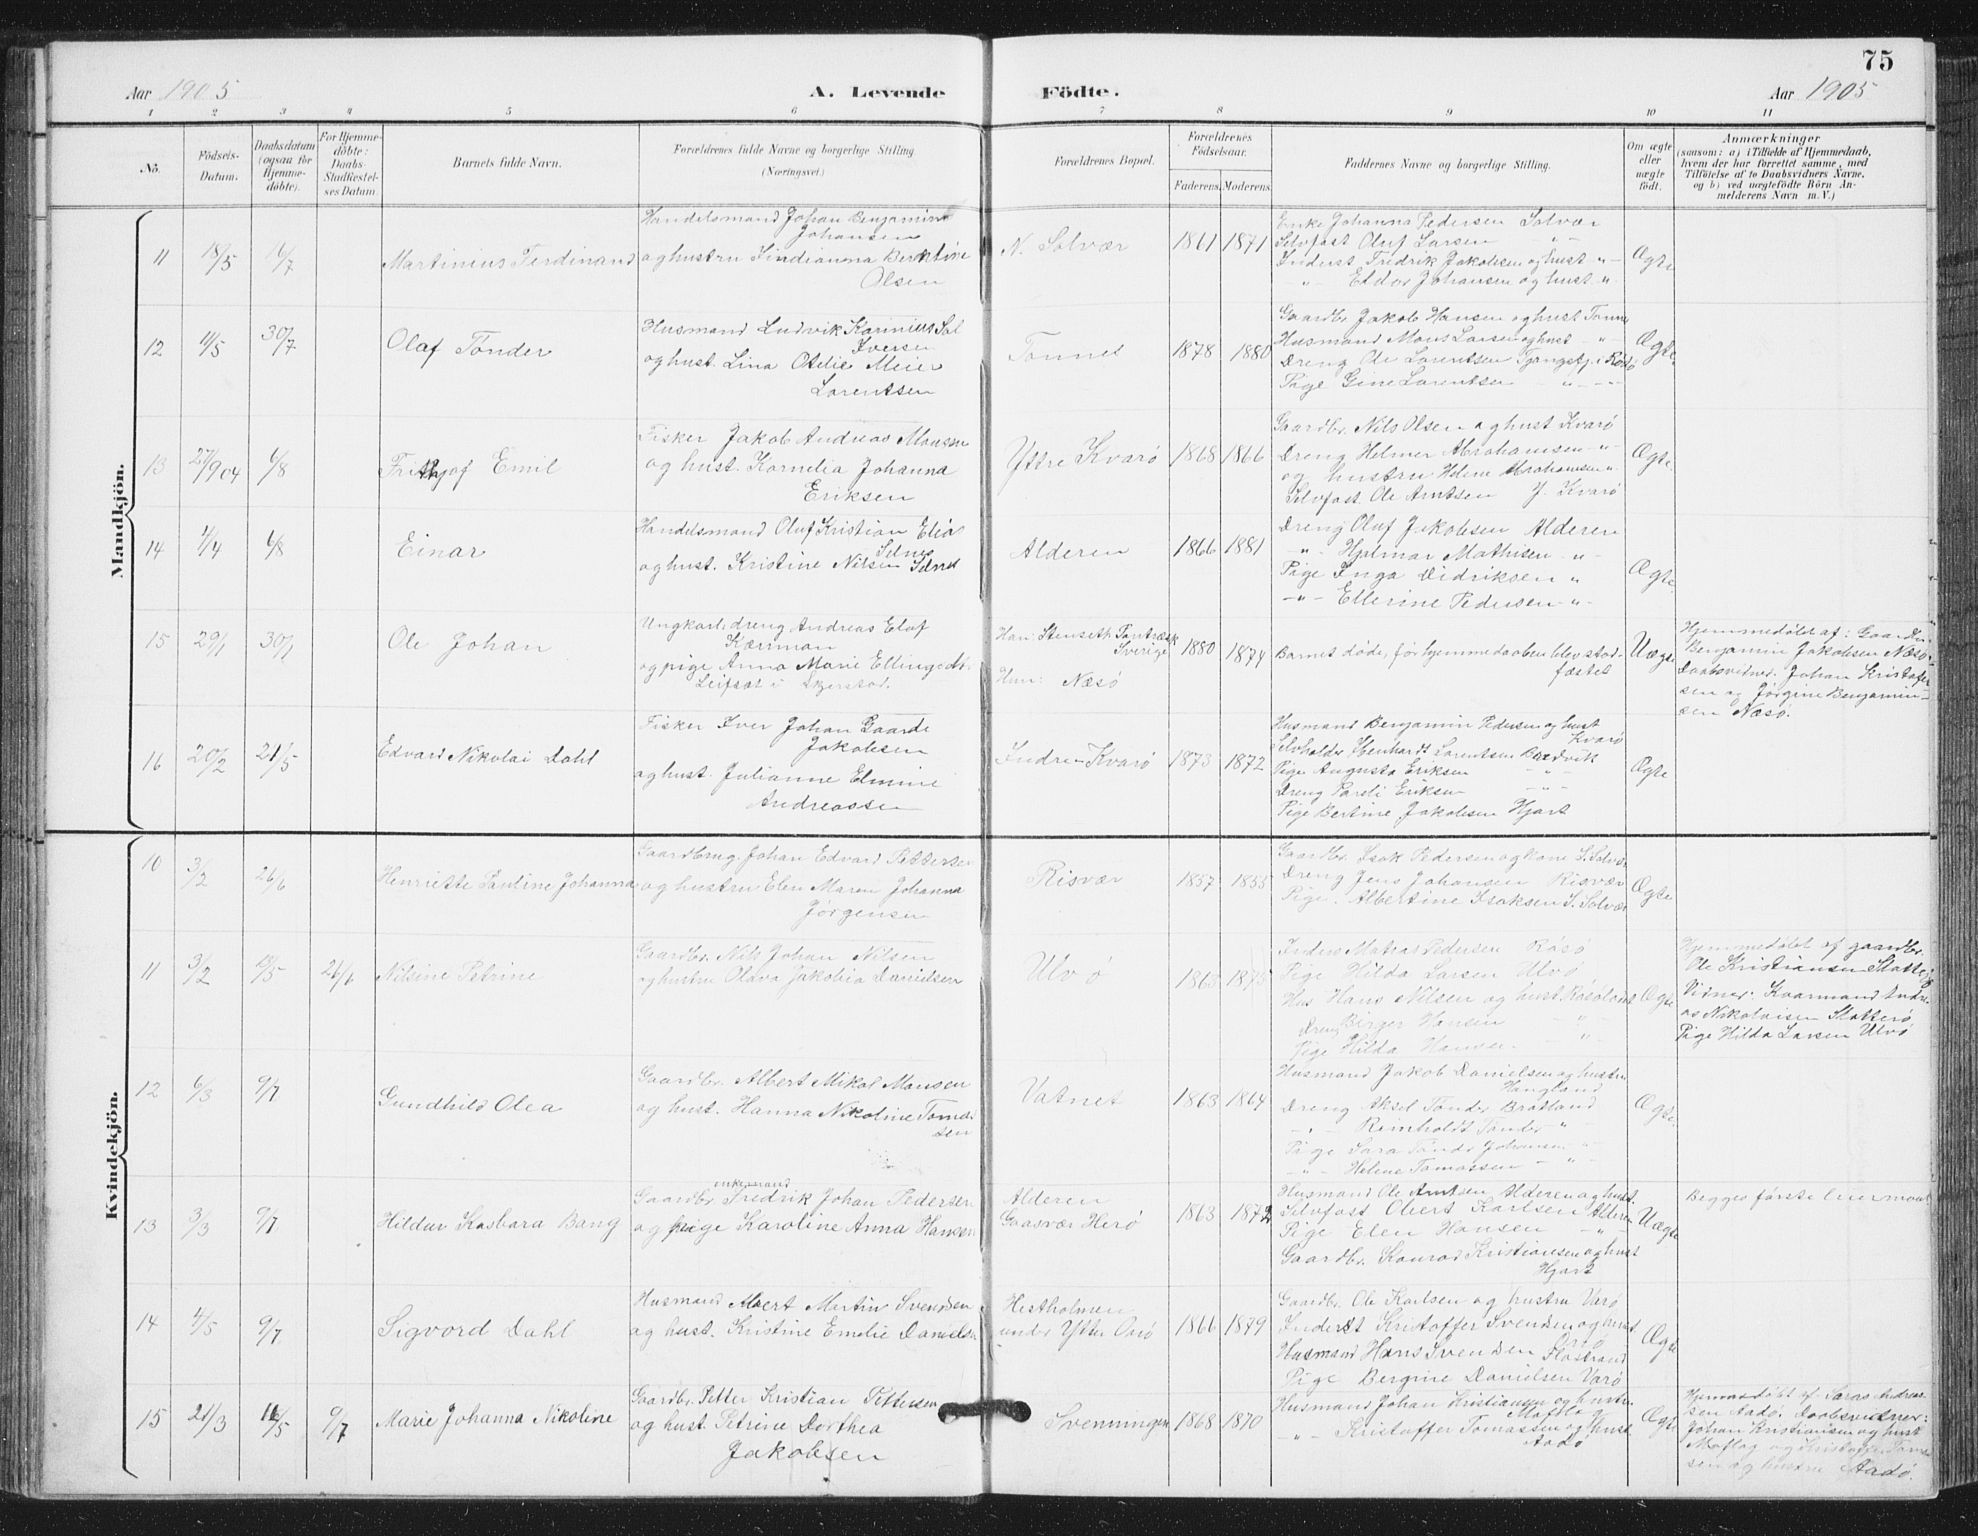 75
Aar 1905
A. Levende
Födte.
Aar 1905
1 2 3 4 5 6 7 8 9 10 11
No.
Födsels-Datum.
Daabsdatum (ogsaa för Hjemmedöbte).
For Hjemmedöbte: Daabs-Stadfæstelses Datum
Barnets fulde Navn.
Forældrenes fulde Navne og borgerlige Stilling. (Næringsvei.)
Forældrenes Bopæl.
Forældrenes Födselsaar.
Faderens. Moderens.
Faddernes Navne og borgerlige Stilling.
Om ægte eller uægte födt.
Anmærkninger
(saasom: a) i Tilfælde af Hjemmedaab,
hvem der har forrettet samme, med
Tilföielse af to Daabsvidners Navne,
og b) ved uægtefödte Börn An-
melderens Navn m. V.)
Mandkjön.
11 18/5 16/7 Martinius Ferdinand
Handelsmand Johan Benjamin
Johansen
og hustru Findianna Berktine
Olsen
N. Solvær 1861 1871
Enke Johanna Pedersen Solvær
Selvfost Oluf Larsen - " -
Inderst Fredrik Jakobsen og hust " -
- " - Eldor Johansen og hust - "
Ægte
12 11/5 30/7 Olaf Tönder
Husmand Ludvik Karinius Sol
Iversen
og hust. Lina Otelie Meier
Lorentsen
Tonnes 1878 1880
Gaardbr Jakob Hansen og hust Tonnes
Husmand Mons Larsen og hust - " -
Dreng Ole Lorentsen Tjongsfj. i Rödö
Pige Gine Lorentsen - " - -
Ægte
13 27/9 04 6/8 Frithjof Emil
Fisker Jakob Andreas Monsen
og hust. Kornelia Johanna
Eriksen
Yttre Kvarö 1868 1866
Gaardbr. Nils Olsen og hust Kvarö
Dreng Helmer Abrahamsen - " -
og hustru Helene Abrahamsen "
Selvfost Ole Arntsen Y. Kvarö
Ægte
14 4/4 6/8 Einar
Handelsmand Oluf Kristian Elia
Selnes
og hust. Kristine Nilsen Selnes
Alderen 1866 1881
Dreng Oluf Jakobsen Alderen
- " - Hjalmar Mathisen - " -
Pige Inga Didriksen "
- " - Ellerine Pedersen - " -
Ægte
15 29/1 30/1 Ole Johan
Ungkarl dreng Andreas Elof
Kærrman
og pige Anna Marie Ellingsdtr
Leifsæt i Skjerstad.
Han: Stenseth
Sverige
Hun: Næsö
1880 1874
Barnet döde, för hjemmedaaben blev stad-
fæstet
Uægte
Hjemmedöbt af: Gaardbr.
Benjamin Jakobsen Næsö.
Daabsvidner: Johan Kristoffer
sen og Jörgine Benjamin-
sen Næsö.
16 20/2 21/5 Edvard Nikolai Dahl
Fisker Iver Johan Gaarde
Jakobsen
og hust. Julianne Elmine
Andreassen
Indre-Kvarö 1873 1872
Husmand Benjamin Pedersen og hust
Kvarö
Selvholder Ebenhardt Lorentsen Bredvik
Pige Augusta Eriksen - " -
Dreng Pareli Eriksen - " -
Pige Bertine Jakobsen Hjart
Ægte
Kvindekjön.
10 3/2 26/6 Henriette Pauline Johanna
Gaardbrug. Johan Edvard Pettersen
og hustru Elen Maren Johanna
Jörgensen
Risvær 1857 1855
Gaardbr. Isak Pedersen og kone S. Solvær
Dreng Jens Johansen Risvær
Pige. Albertine Isaksen S. Solvær
Ægte
11 3/2 26/6 Nilsine Petrine
Gaardbr. Nils Johan Nilsen
og hustru Oldva Jakobia Danielsen
Ulvö 1863 1875
Inders Matias Pedersen Rösö
Pige Hilda Larsen Ulvö
Hus Hans Nilsen og hust Rösöland
Dreng Birger Hansen - " -
Pige Hilda Hansen - " -
Ægte
Hjemmedöbt af gaardbr.
Ole Kristiansen Slotterö
Vidner: Kvarmand Andre-
as Nikolaisen Slotterö
Pige Hilda Larsen Ulvö
12 6/3 9/7 Gundhild Olea
Gaardbr. Albert Mikal Monsen
og hust. Hanna Nikoline Tomas
sen
Vatnet 1863 1864
Husmand Jakob Danielsen og hustru
Haugland
Dreng Aksel Tönder Bratland
- " - Reinholdt Tönder "
Pige Sara Tönder Johansen - " -
- " - Helene Tomassen - " -
Ægte
13 3/3 9/7 Hildur Kasbara Bang
enkemand
Gaardbr. Fredrik Johan Pedersen
og pige Karoline Anna Hansen
Alderen
Gaasvær Herö
1863 1872
Husmand Ole Arntsen Alderen og hust.
Selvfost Obert Karlsen Alderen
Pige Elen Hansen - "
Gaardbr. Konrad Kristiansen og hust
Hjart
Uægte
Begges förste leiermaal
14 4/5 9/7 Sigvord Dahl
Husmand Albert Martin Svendsen
og hust. Kristine Emelie Danielsen
Hestholmen
under Ytter Oarö
1866 1879
Gaardbr. Ole Karlsen og hustru Varö
Inderst Kristoffer Svendsen og hust.
Husmand Hans Svendsen Flostrand
Pige Bergine Danielsen Varö
Ægte
15 21/3 16/5 9/7 Marie Johanna Nikoline
Gaardbr. Petter Kristian Pettersen
og hust. Petrine Dorthea
Jakobsen
Svenningen 1868 1870
Husmand Johan Kristiansen og hustru
Moflag
- " - Kristoffer Tomassen og hust
Aadö
Ægte
Hjemmedöbt af Andreas-
sen Aadö. Daabsvidner:
Johan Kristiansen og hust
Moflag og Kristoffer Tomas
sen og hustru Aadö.